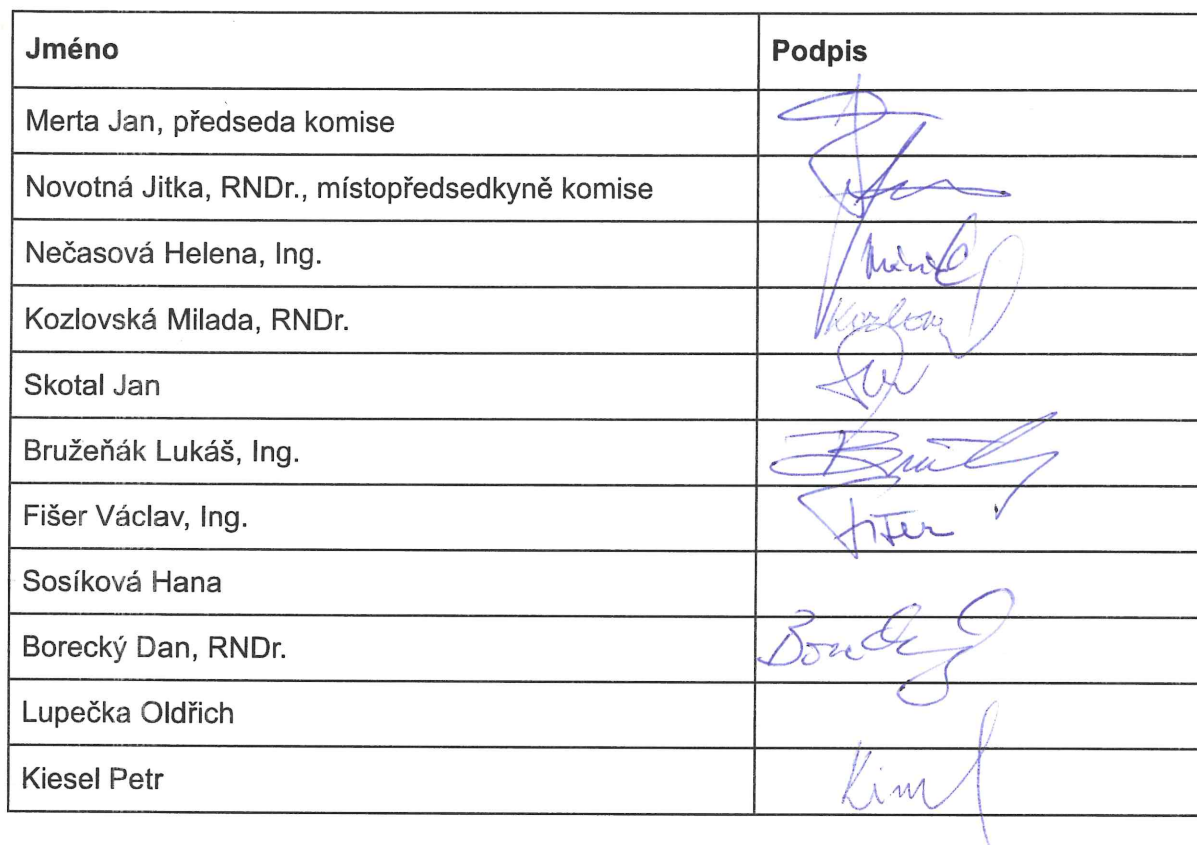 Jméno Podpis
Merta Jan, předseda komise
Novotná Jitka, RNDr., místopředsedkyně komise
Nečasová Helena, Ing.
Kozlovská Milada, RNDr.
Skotal Jan
Bružeňák Lukáš, Ing.
Fišer Václav, Ing. Fišer
Sosíková Hana
Borecký Dan, RNDr.
Lupečka Oldřich
Kiesel Petr